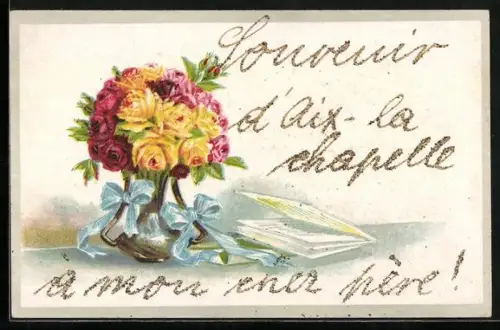 Souvenir
d'Aix-la
chapelle
à mon cher père!